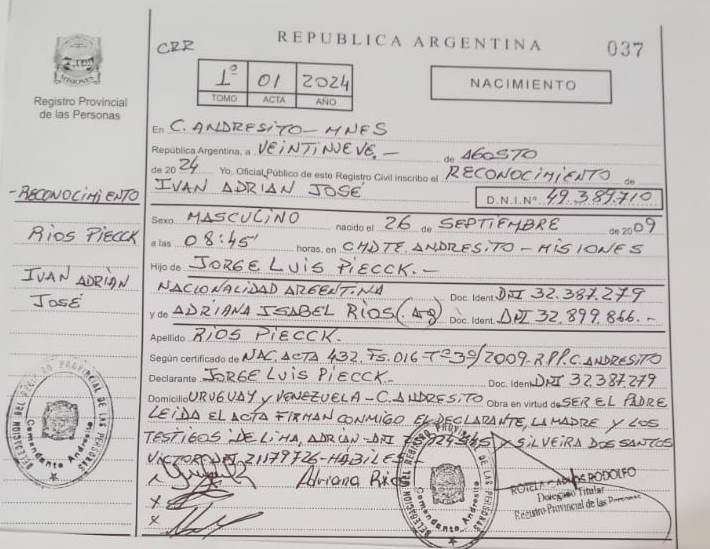 CRR
REPUBLICA ARGENTINA
037
MISIONES
Registro Provincial
de las Personas
1º 01 2024
TOMO ACTA AÑO
NACIMIENTO
En C. ANDRESiTO - MNES
República Argentina, a VEiNTiNUEVE.- de AGOSTO
de 2024 Yo, Oficial Público de este Registro Civil inscribo el RECONOCiMiENTO de
IVAN ADRIAN JOSÉ D.N.I.Nº 49.389.710
-RECONOCiMiENTO
RiOS PiECCK
IVAN ADRIAN
JOSÉ
Sexo MASCULiNO nacido el 26 de SEPTiEMBRE de 2009
a las 08:45 horas, en CMDTE. ANDRESiTO - MiSIONES
Hijo de JORGE LUiS PiECCK.-
NACiONALiDAD ARGENTiNA Doc. Ident. DNI 32.387.279
y de ADRiANA ISABEL RiOS (.Arg) Doc. Ident. DNI 32.899.866.-
Apellido RiOS PiECCK.
Según certificado de NAC. ACTA 432. Fs. 016-Tº3º/2009-R.P.P.C. ANDRESiTO
Declarante JORGE LUiS PiECCK.- Doc. Ident DNI 32387279
Domicilio URUGUAY y VENEZUELA - C. ANDRESiTO Obra en virtud de SER EL PADRE
LEiDA EL ACTA FiRMAN CONMiGO EL DECLARANTE, LA MADRE Y LOS
TESTiGOS DE LiMA, ADRiAN - DNI Y SiLVEiRA DOS SANTOS
VICTOR DNI 21179726 - HÁBiLES
Adriana Rios
DELEGACION DEL REGISTRO PROVINCIAL DE LAS PERSONAS
Comandante Andresito
DELEGACION DEL REGISTRO PROVINCIAL DE LAS PERSONAS
Comandante Andresito
ROTELA CARLOS RODOLFO
Delegado Titular
Registro Provincial de las Personas